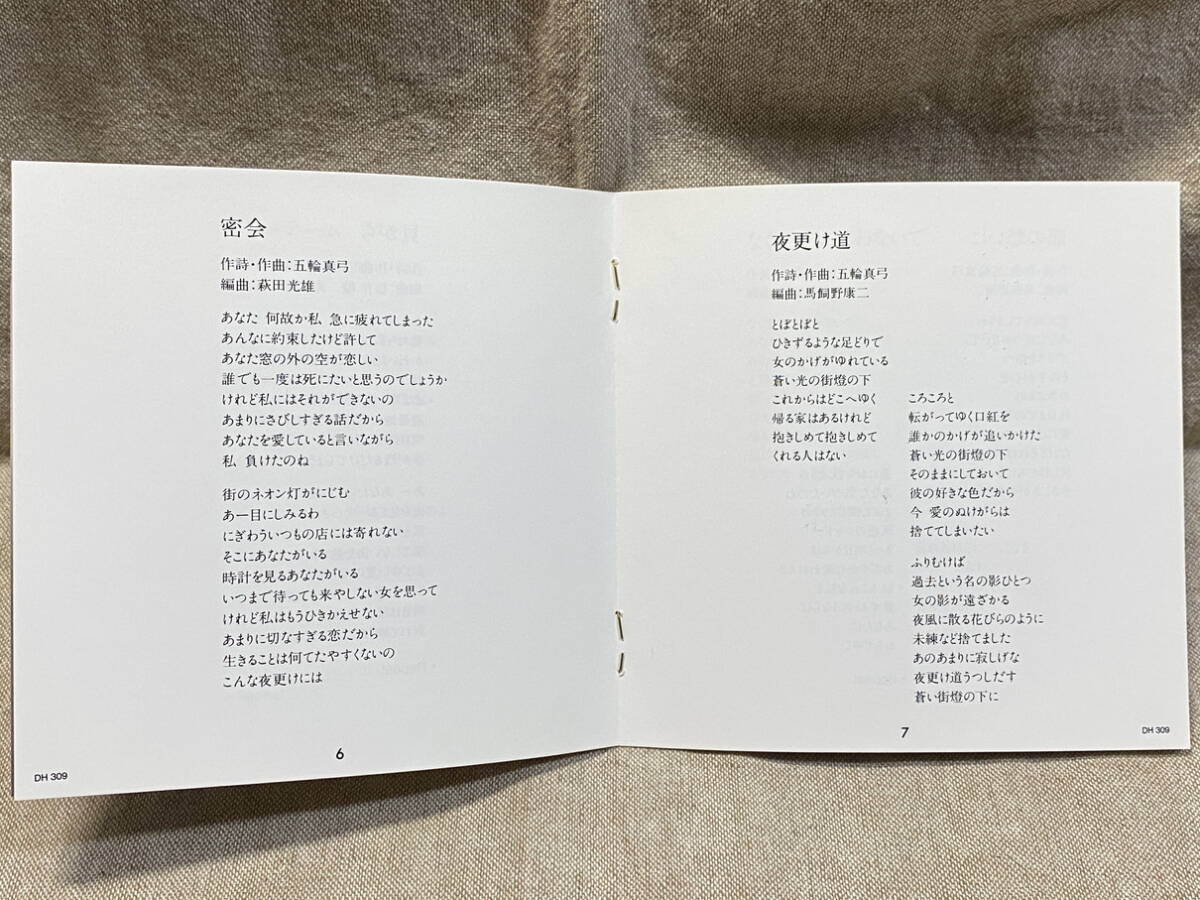 密会
作詩・作曲：五輪真弓
編曲：萩田光雄
あなた 何故か私、急に疲れてしまった
あんなに約束したけど許して
あなた窓の外の空が恋しい
誰でも一度は死にたいと思うのでしょうか
けれど私にはそれができないの
あまりにさびしすぎる話だから
あなたを愛していると言いながら
私、負けたのね
街のネオン灯がにじむ
あー目にしみるわ
にぎわういつもの店には寄れない
そこにあなたがいる
時計を見るあなたがいる
いつまで待っても来やしない女を思って
けれど私はもうひきかえせない
あまりに切なすぎる恋だから
生きることは何てたやすくないの
こんな夜更けには
6
DH 309
夜更け道
作詩・作曲：五輪真弓
編曲：馬飼野康二
とぼとぼと
ひきずるような足どりで
女のかげがゆれている
蒼い光の街燈の下
これからはどこへゆく
帰る家はあるけれど
抱きしめて抱きしめて
くれる人はない
ころころと
転がってゆく口紅を
誰かのかげが追いかけた
蒼い光の街燈の下
そのままにしておいて
彼の好きな色だから
今 愛のぬけがらは
捨ててしまいたい
ふりむけば
過去という名の影ひとつ
女の影が遠ざかる
夜風に散る花びらのように
未練など捨てました
あのあまりに寂しげな
夜更け道うつしだす
蒼い街燈の下に
7
DH 309